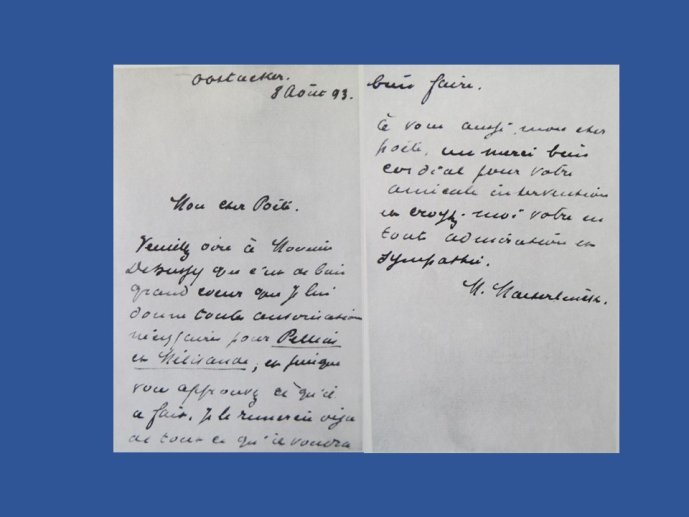 Oostacker.
8 Août 93.
Mon cher Poète.
Veuillez dire à Monsieur
Debussy que c'est de bien
grand coeur que je lui
donne toute autorisation
nécessaire pour Pelléas
et Mélisande, et puisque
vous approuvez ce qu'il
a fait, je le remercie déja
de tout ce qu'il voudra
bien faire.
à vous aussi, mon cher
poète, un merci bien
cordial pour votre
amicale intervention
et croyez-moi votre en
toute admiration et
sympathie.
M. Maeterlinck.